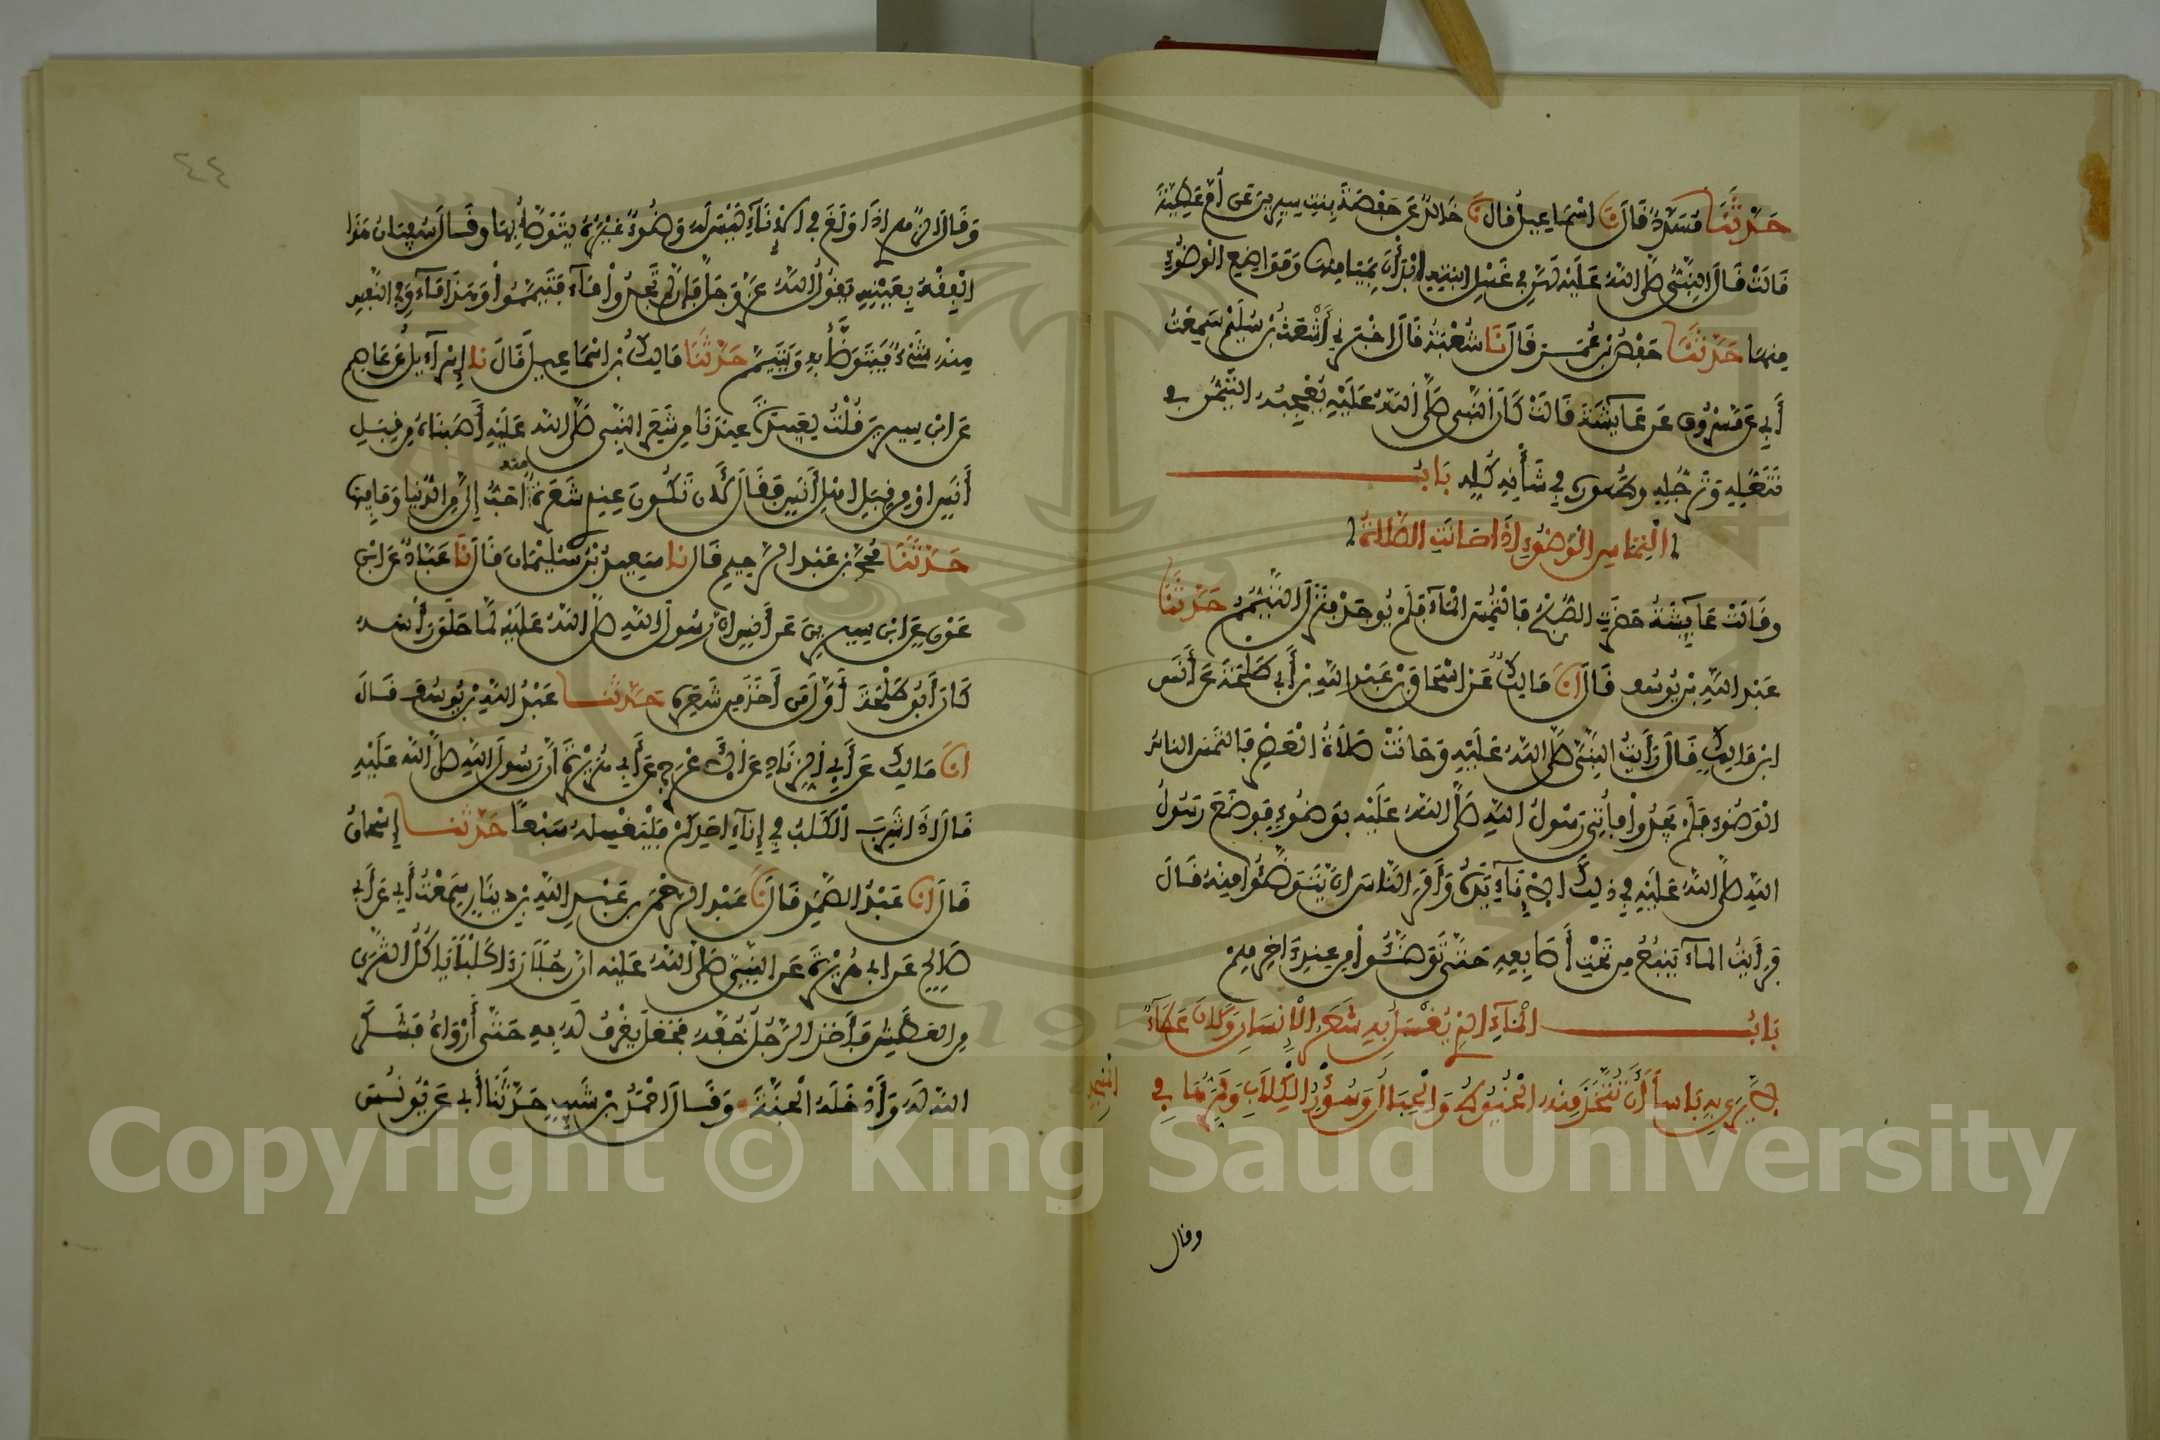 حَدَّثَنَا مُسَدَّدٌ قَالَ نَا اسْمَاعِيلُ قال نَا خَالِدٌ عَن حَفْصَةَ بِنتِ سِيرِينَ عَن أُمِّ عَطِيَّةَ
قَالَتْ قَالَ النَّبِيُّ صَلَّى اللهُ عَلَيْهِ لَهُنَّ فِي غَسْلِ ابْنَتِهِ ابْدَأْنَ بِمَيَامِنِهَا وَمَوَاضِعِ الْوُضُوءِ
مِنهَا حَدَّثَنَا حَفْصُ بْنُ عُمَرَ قَالَ نَا شُعْبَةُ قَالَ اخْبَرَنِي أَشْعَثُ بْنُ سُلَيْمٍ سَمِعْتُ
أَبِي عَن مَسْرُوقٍ عَن عَائِشَةَ قَالَتْ كَانَ النَّبِي صَلَّى اللهُ عَلَيْهِ يُعْجِبُهُ التَّيَمُّنُ فِي
تَنَعُّلِهِ وَتَرَجُّلِهِ وَطُهُورِهِ فِي شَأْنِهِ كُلِّهِ بَابُ
الْتِمَاسِ الْوَضُوءِ إذَا حَانَتِ الصَّلَاةُ
وقَالَتْ عَايِشَةُ حَضَرَتِ الصُّبْحُ فَالْتُمِسَ الْمَاءُ فَلَمْ يُوجَدْ فَنَزَلَ التَّيَمُّمُ حَدَّثَنَا
عَبْدُ اللهِ بْنُ يُوسُفَ قَالَ انَا مَالِكٌ عَن اسْحَاقَ بْنِ عَبْدِ اللهِ بْنِ أَبِي طَلْحَةَ عَن أَنَسِ
ابْنِ مَالِكٍ قَالَ رَأَيْتُ النَّبِيَّ صَلَّى اللهُ عَلَيْهِ وَحَانَتْ صَلَاةُ الْعَصْرِ فَالْتَمَسَ النَّاسُ
الْوَضُوءَ فَلَمْ يَجِدُوا فَأُتِيَ رَسُولُ اللهِ صَلَّى اللهُ عَلَيْهِ بِوَضُوءٍ فَوَضَعَ رَسُولُ
اللهِ صَلَّى اللهُ عَلَيْهِ فِي ذَلِكَ الْإِنَاءِ يَدَهُ وَأَمَرَ النَّاسَ انْ يَتَوَضَّئُوا مِنْهُ قَالَ
فَرَأَيْتُ الْمَاءَ يَنْبُعُ مِن تَحْتِ أَصَابِعِهِ حَتَّى تَوَضَّئُوا مِن عِندِ آخِرِهِمْ
بَابُ الْمَاءِ الذِي يُغْسَلُ بِهِ شَعَرُ الْإِنسَانِ وَكَانَ عَطَاءٌ
لَا يَرَى بِهِ بَاسا أَنْ تُتَّخَذَ مِنْهُ الْخُيُوطُ وَالْحِبَالُ وَسُؤْرُ الْكِلَابِ وَمَمَرُّهَا فِي
وقال
٤٤
وَقَالَ الزُّهْرِي إذَا وَلَغَ فِي الْإِنَاءِ لَيْسَ لَهُ وَضُوءٌ غَيْرُهُ يَتَوَضَّأُ بِهَا وقَالَ سُفْيَانُ هَذَا
الْفِقْهُ بِعَيْنِهِ يَقُولُ اللهُ عَزَّ وَجَلَّ فَإن لَمْ تَجِدُوا مَاءً فَتَيَمَّمُوا وَهَذَا مَاءٌ وَفِي النَّفْسِ
مِنهُ شَيْءٌ يَتَوَضَّأُ بِهِ وَيَتَيَمَّمُ حَدَّثَنَا مَالِكُ بْنُ اسْمَاعِيلَ قَالَ نا إسْرَآئِيلُ عَن عَاصِمٍ
عَن ابْنِ سِيرِينَ قُلْتُ لِعَبِيدَةَ عِندَنَا مِن شَعَرِ النَّبِي صَلَّى اللهُ عَلَيْهِ أَصَبْنَاهُ مِن قِبَلِ
أَنَسٍ اوْ مِن قِبَلِ اهْلِ أَنَسٍ فَقَالَ لَأَن تَكُونَ عِندِي شَعَرَةٌ منه احَبُّ إلَيَّ مِنَ الدُّنْيَا وَمَا فِيهَا
حَدَّثَنَا مُحَمَّدُ بْنُ عَبْدِ الرَّحِيمِ قَالَ نا سَعِيدُ بْنُ سُلَيْمَانَ قَالَ نَا عَبَّادٌ عَن ابْنِ
عَوْنٍ عَنِ ابْنِ سِيرِينَ عَن أَنَسٍ انَّ رَسُولَ اللهِ صَلَّى اللهُ عَلَيْهِ لَمَّا حَلَقَ رَأْسَهُ
كَانَ أَبُو طَلْحَةَ أَوَّلَ مَن أَخَذَ مِن شَعَرِهِ حَدَّثَنَا عَبْدُ اللهِ بْنُ يُوسُفَ قَالَ
انَا مَالِكٌ عَن أَبِي الزِّنَادِ عَنِ الْأَعْرَجِ عَن أَبِي هُرَيْرَةَ انَّ رَسُولَ اللهِ صَلَّى اللهُ عَلَيْهِ
قَالَ اذَا شَرِبَ الْكَلْبُ فِي إنَاءِ احَدِكُمْ فَلْيَغْسِلْهُ سَبْعاً حَدَّثَنَا إسْحَاقُ
قَالَ انَا عَبْدُ الصَّمَدِ قَالَ نَا عَبْدُ الرَّحْمَنِ بْنُ عَبْدِ اللهِ بْنِ دِينَارٍ سَمِعْتُ أَبِي عَن أَبِي
صَالِحٍ عَن ابِي هُرَيْرَةَ عَنِ النَّبِيِّ صَلَّى اللهُ عَلَيْهِ انَّ رَجُلًا رَءَا كَلْبًا يَاكُلُ الثَّرَى
مِنَ الْعَطَشِ فَأَخَذَ الرَّجُلُ خُفَّهُ فَجَعَلَ يَغْرِفُ لَهُ بِهِ حَتَّى أَرْوَاهُ فَشَكَرَ
اللهُ لَهُ وَأَدْخَلَهُ الْجَنَّةَ وَقَالَ احْمَدُ بْنُ شَبِيبٍ حَدَّثَنَا أَبِي عَن يُونُسَ
Copyright © King Saud University
1957